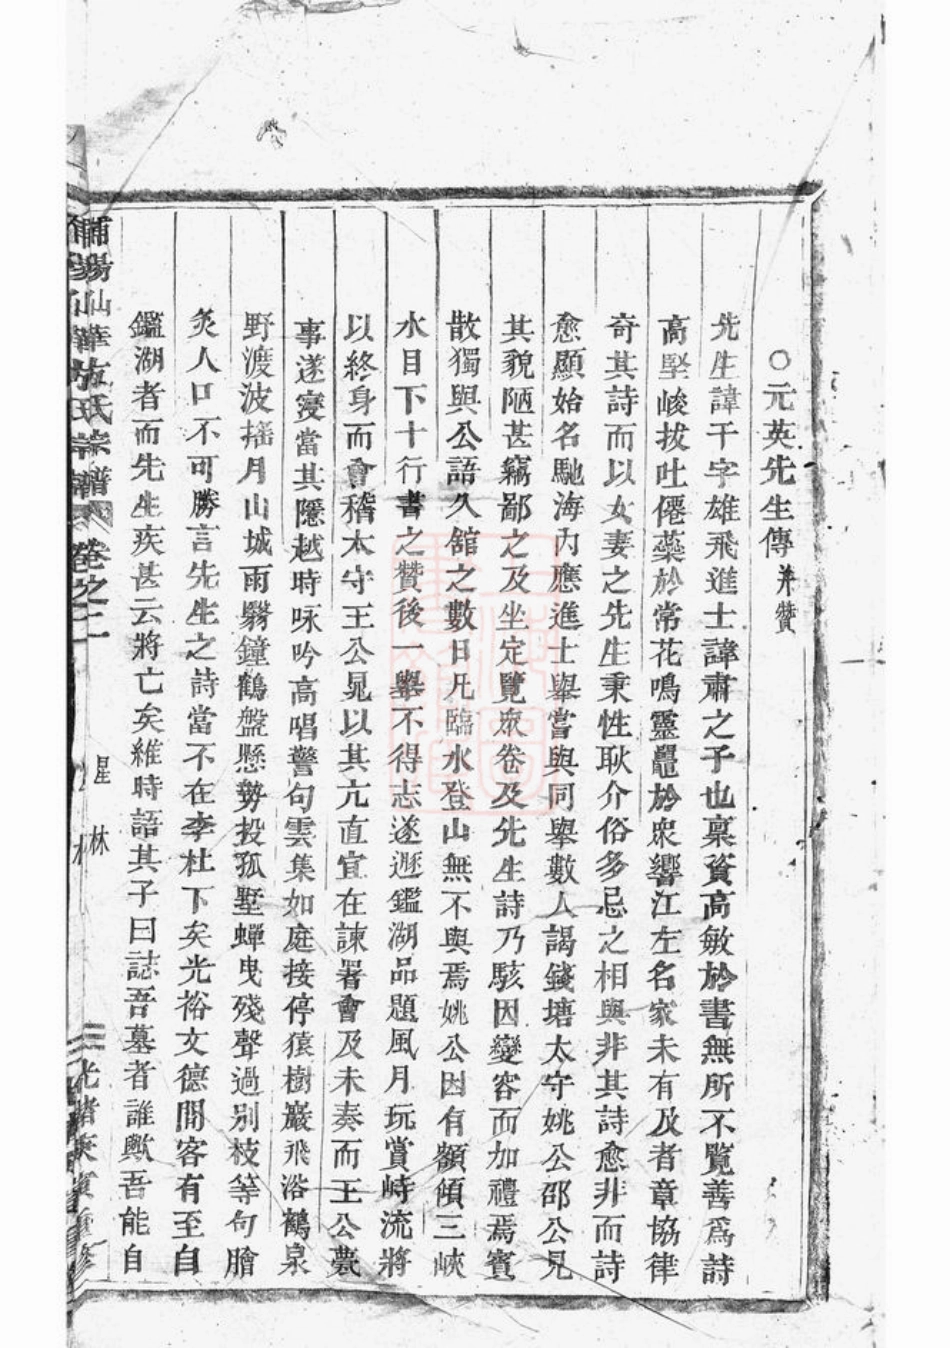 ○元英先生傳 并贊
先生諱干字雄飛進士諱肅之子也稟資高敏於書無所不覽善爲詩
高堅峻拔吐僊蘂於常花鳴靈鼉於衆響江左名家未有及者章協律
奇其詩而以女妻之先生秉性耿介俗多忌之相與非其詩愈非而詩
愈顯始名馳海內應進士舉嘗與同舉數人謁錢塘太守姚公邵公見
其貌陋甚竊鄙之及坐定覽衆卷及先生詩乃駭因變容而加禮焉賓
散獨與公語久館之數日凡臨水登山無不與焉姚公因有額傾三峽
水目下十行書之贊後一舉不得志遂遯鑑湖品題風月玩賞峙流將
以終身而會稽太守王公晁以其亢直宜在諫署會及未奏而王公薨
事遂寢當其隱越時咏吟高唱警句雲集如庭接停猿樹巖飛浴鶴泉
野渡波搖月山城雨翳鐘鶴盤懸勢投孤墅蟬曳殘聲過別枝等句膾
炙人口不可勝言先生之詩當不在李杜下矣光裕文德間客有至自
鑑湖者而先生疾甚云將亡矣維時語其子曰誌吾墓者誰歟吾能自
浦陽仙華方氏宗譜 卷之二 星林 三 光緒庚寅重修